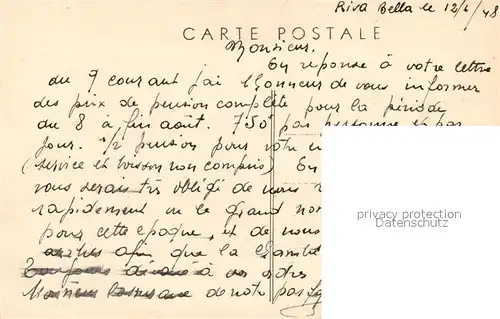 Riva Bella le 12/6/48
CARTE POSTALE
Monsieur.
En reponse à votre lettre
du 9 courant j'ai l'honneur de vous informer
des prix de pension complète pour la période
du 8 à fin août. 750 par personne et par
jour. 1/2 pension pour votre
(service et boisson non compris) En
vous serais très obligé de nous
rapidement vu le grand
pour cette époque, et de nous
afin que la
à vos ordres
de notre
privacy protection
AnsichtskartenBilder.de